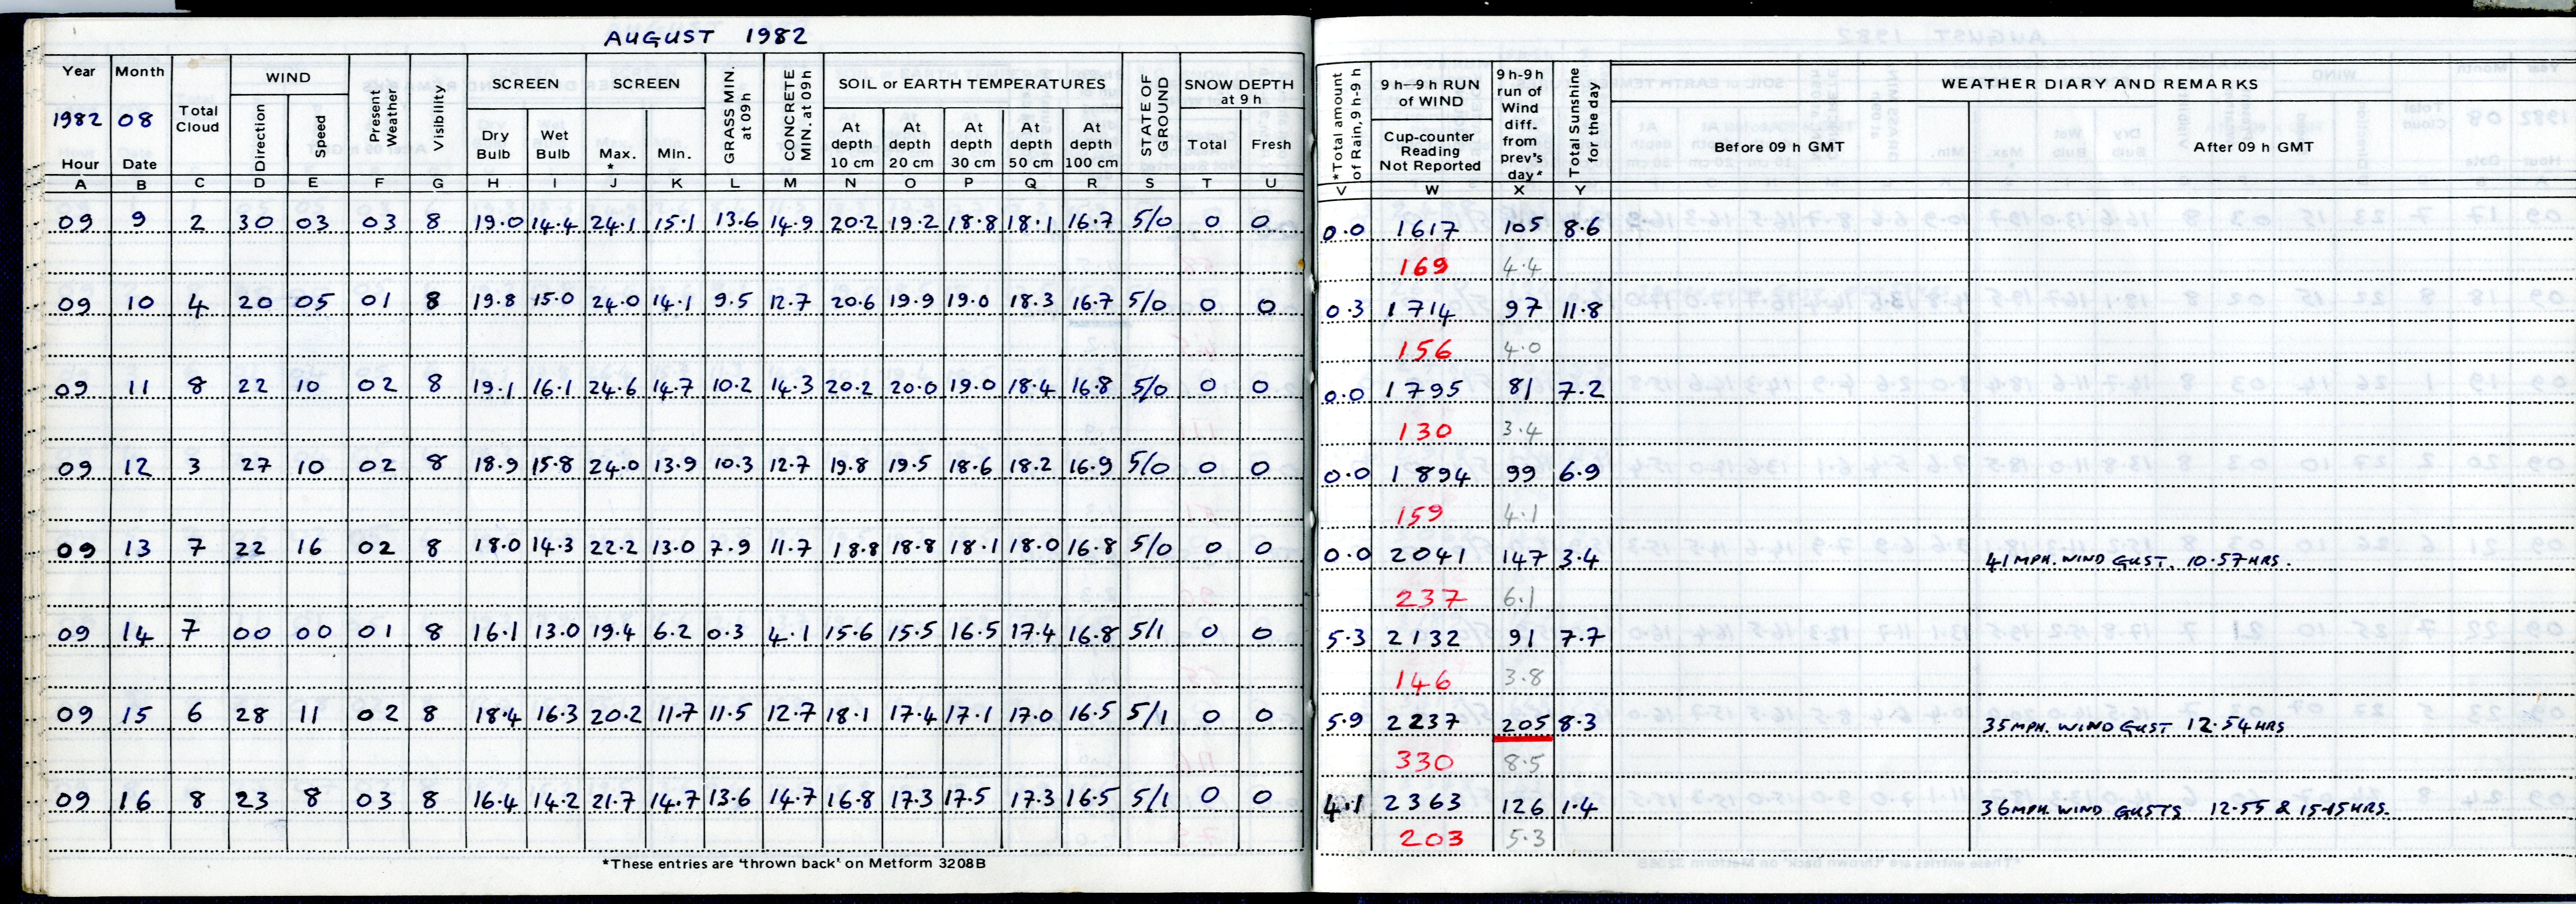 AUGUST 1982
Year Month Total Cloud WIND Direction Speed Present Weather Visibility SCREEN Dry Bulb Wet Bulb SCREEN Max. * Min. GRASS MIN. at 09h CONCRETE MIN. at 09h SOIL or EARTH TEMPERATURES At depth 10 cm At depth 20 cm At depth 30 cm At depth 50 cm At depth 100 cm STATE OF GROUND SNOW DEPTH at 9 h Total Fresh
1982 08
Hour Date
A B C D E F G H I J K L M N O P Q R S T U
09 9 2 30 03 03 8 19.0 14.4 24.1 15.1 13.6 14.9 20.2 19.2 18.8 18.1 16.7 5/0 0 0
09 10 4 20 05 01 8 19.8 15.0 24.0 14.1 9.5 12.7 20.6 19.9 19.0 18.3 16.7 5/0 0 0
09 11 8 22 10 02 8 19.1 16.1 24.6 14.7 10.2 14.3 20.2 20.0 19.0 18.4 16.8 5/0 0 0
09 12 3 27 10 02 8 18.9 15.8 24.0 13.9 10.3 12.7 19.8 19.5 18.6 18.2 16.9 5/0 0 0
09 13 7 22 16 02 8 18.0 14.3 22.2 13.0 7.9 11.7 18.8 18.8 18.1 18.0 16.8 5/0 0 0
09 14 7 00 00 01 8 16.1 13.0 19.4 6.2 0.3 4.1 15.6 15.5 16.5 17.4 16.8 5/1 0 0
09 15 6 28 11 02 8 18.4 16.3 20.2 11.7 11.5 12.7 18.1 17.4 17.1 17.0 16.5 5/1 0 0
09 16 8 23 8 03 8 16.4 14.2 21.7 14.7 13.6 14.7 16.8 17.3 17.5 17.3 16.5 5/1 0 0
*These entries are 'thrown back' on Metform 3208B
*Total amount of Rain, 9h-9 h 9 h—9 h RUN of WIND Cup-counter Reading Not Reported 9 h-9 h run of Wind diff. from prev's day* Total Sunshine for the day WEATHER DIARY AND REMARKS
Before 09 h GMT After 09 h GMT
V W X Y
0.0 1617 105 8.6
169 4.4
0.3 1714 97 11.8
156 4.0
0.0 1795 81 7.2
130 3.4
0.0 1894 99 6.9
159 4.1
0.0 2041 147 3.4 41 MPH. WIND GUST. 10.57 HRS.
237 6.1
5.3 2132 91 7.7
146 3.8
5.9 2237 205 8.3 35 MPH. WIND GUST 12.54 HRS
330 8.5
4.1 2363 126 1.4 36 MPH. WIND GUSTS 12.55 & 15.15 HRS.
203 5.3